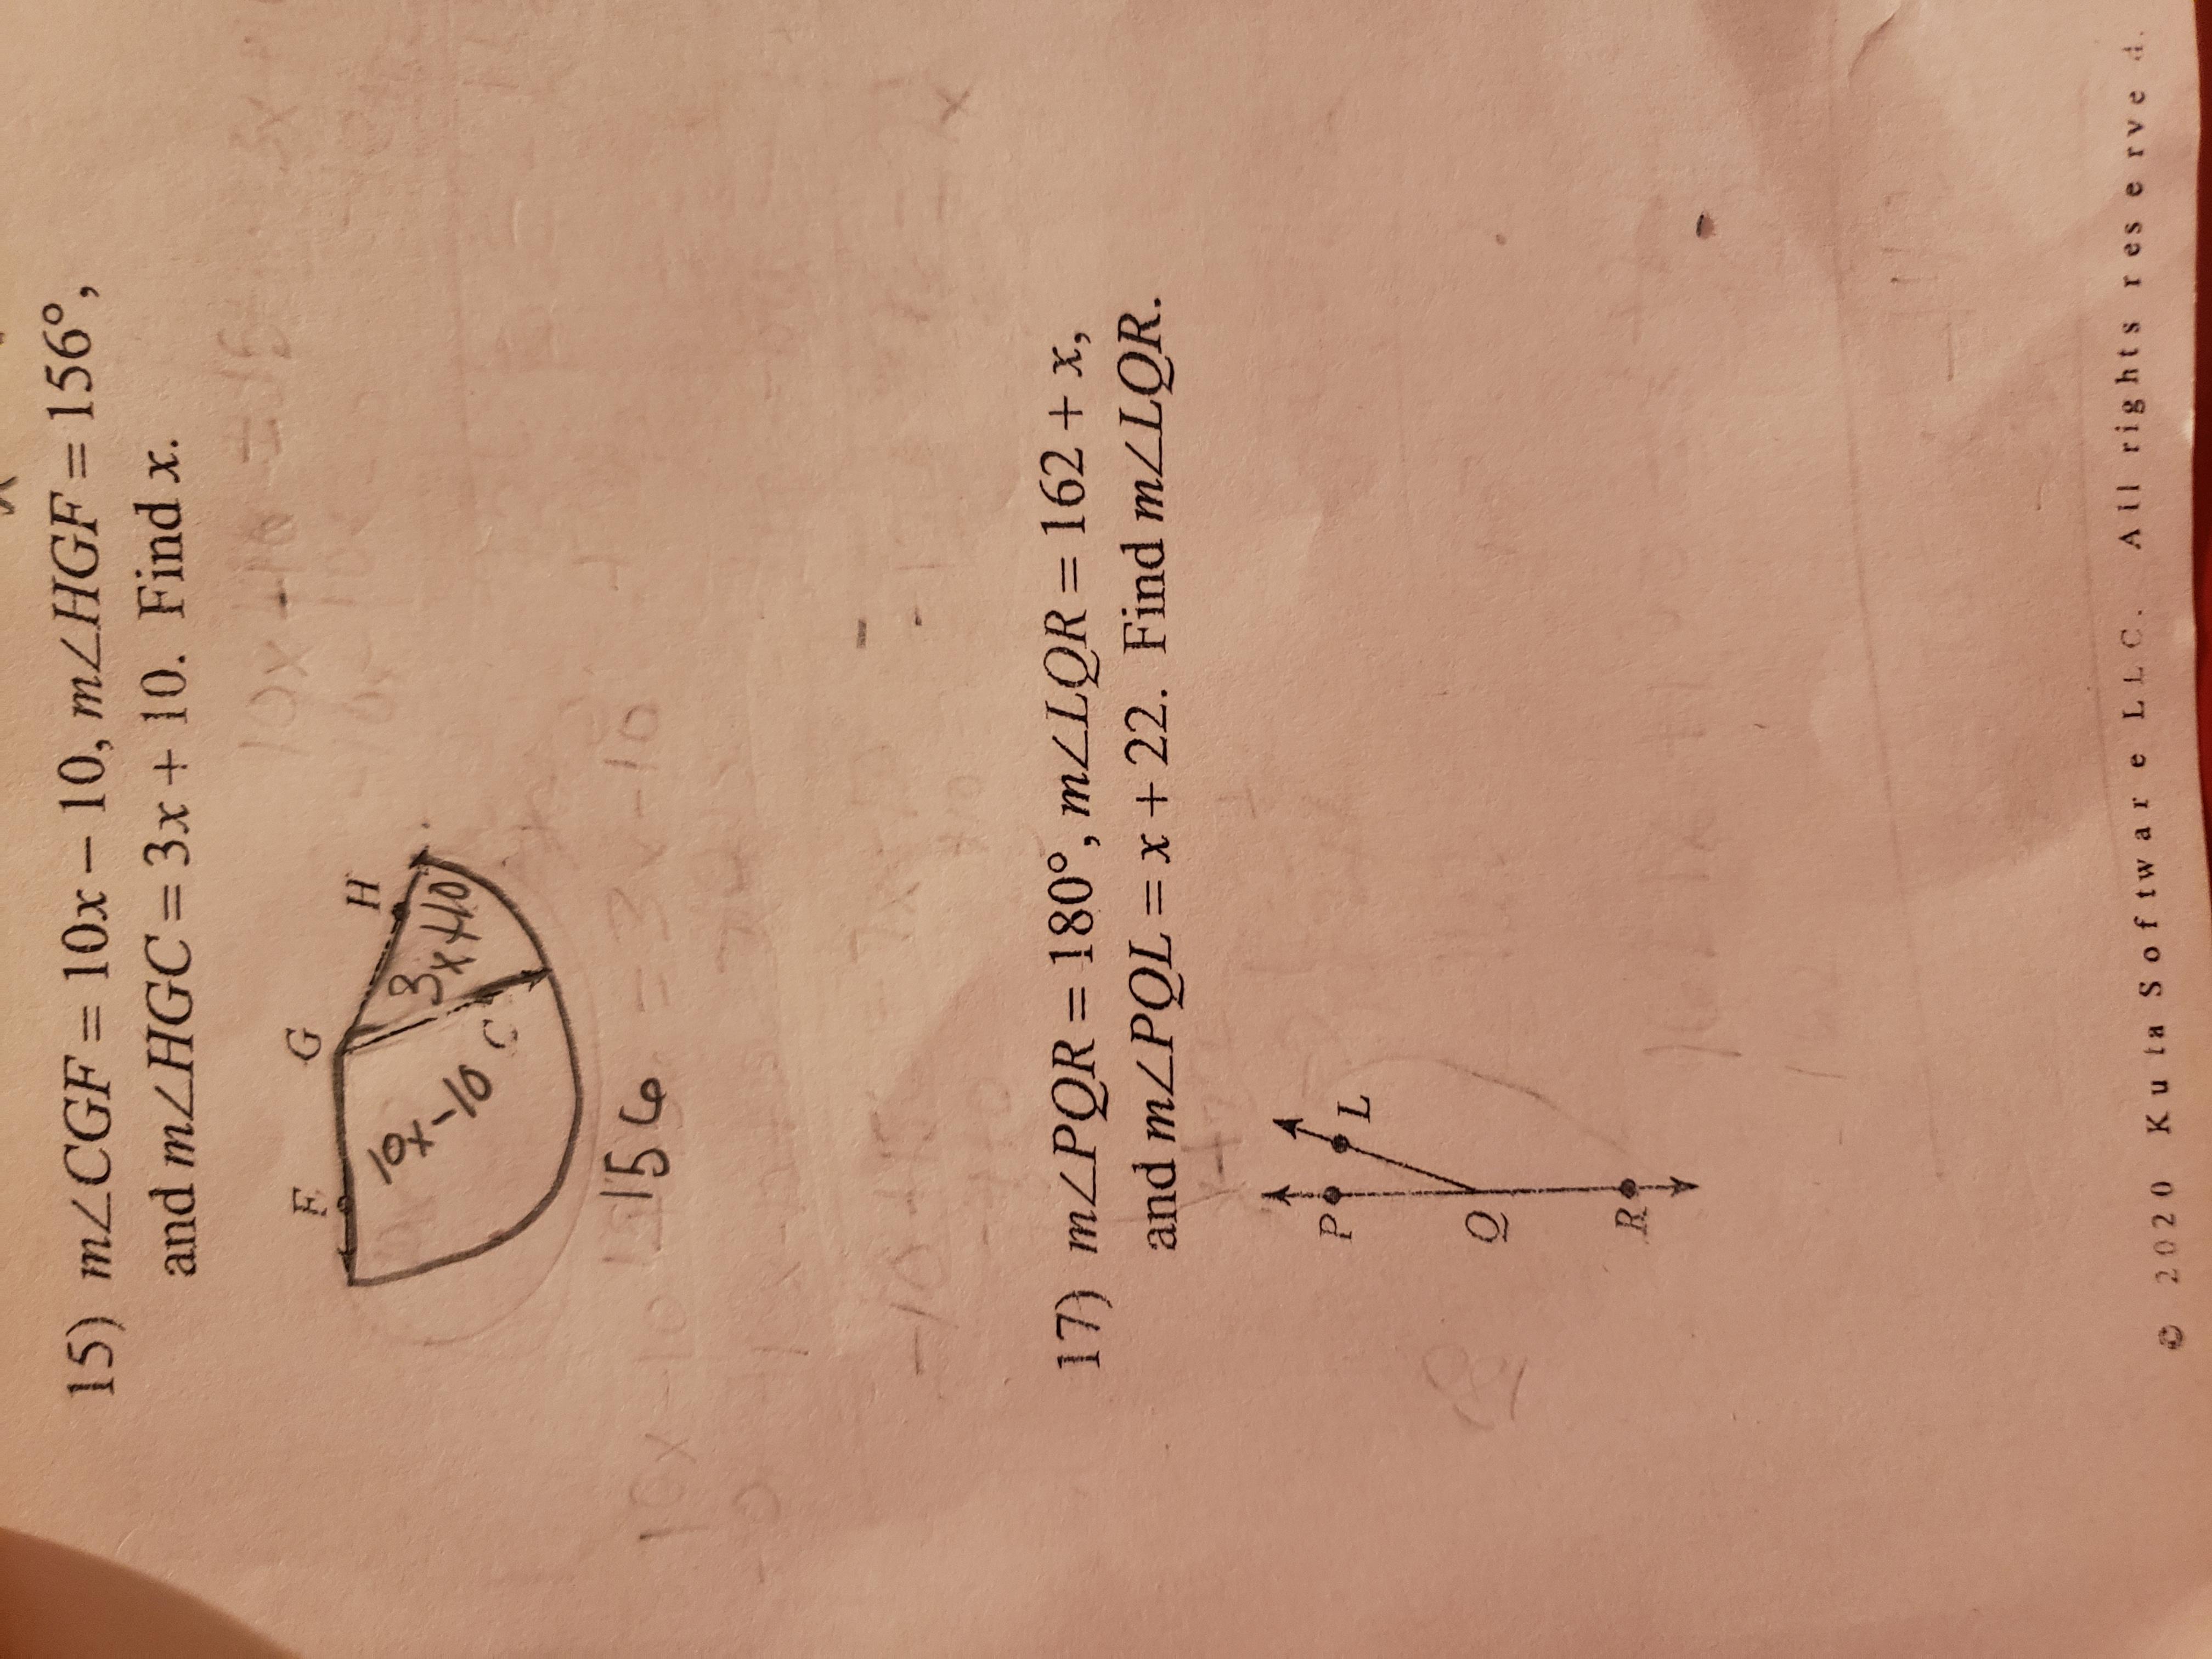 15) m∠CGF = 10x − 10, m∠HGF = 156°,
and m∠HGC = 3x + 10. Find x.
F
G
H
10x-10
3x+10
C
156
17) m∠PQR = 180°, m∠LQR = 162 + x,
and m∠PQL = x + 22. Find m∠LQR.
P
L
Q
R
© 2020 Kuta Software LLC. All rights reserved.